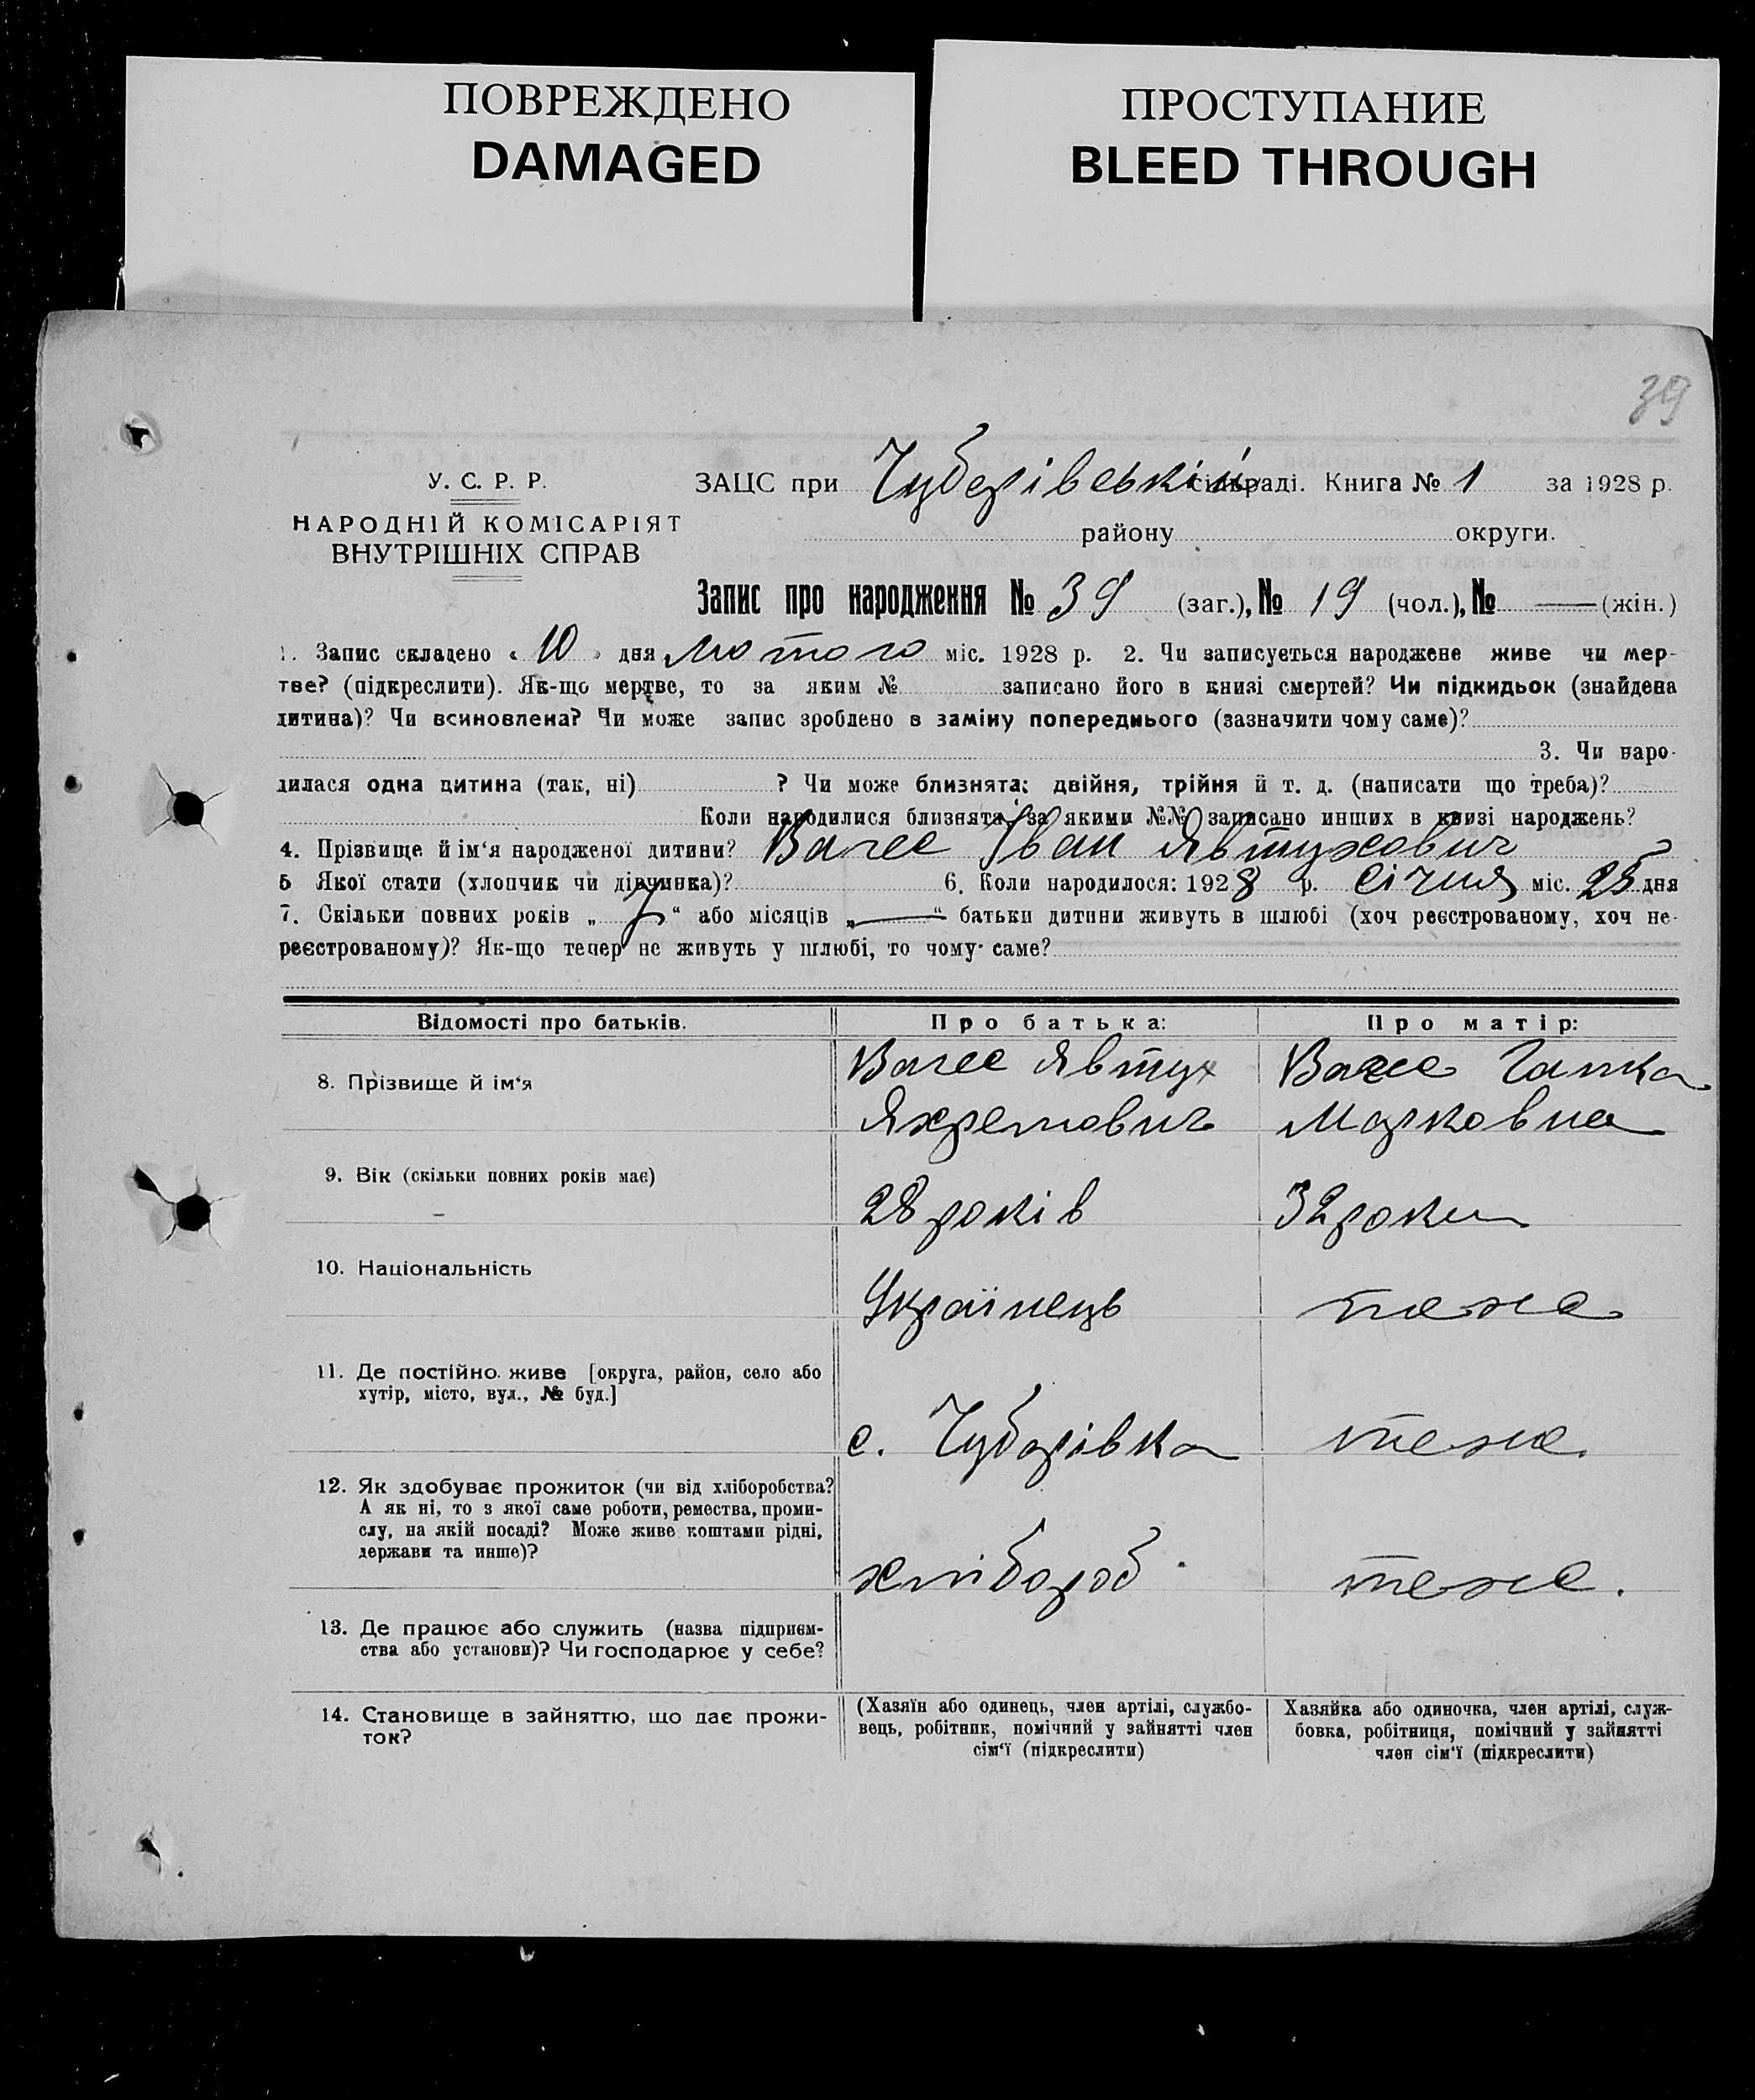 ПОВРЕЖДЕНО
DAMAGED
ПРОСТУПАНИЕ
BLEED THROUGH
39
У. С. Р. Р.
НАРОДНІЙ КОМІСАРІЯТ
ВНУТРІШНІХ СПРАВ
ЗАЦС при Чубарівській сільраді. Книга № 1 за 1928 р.
району округи.
Запис про народження № 39 (заг.), № 19 (чол.), № — (жін.)
1. Запис складено « 10 » дня лютого міс. 1928 р. 2. Чи записується народжене живе чи мер-
тве? (підкреслити). Як-що мертве, то за яким № записано його в книзі смертей? Чи підкидьок (знайдена
дитина)? Чи всиновлена? Чи може запис зроблено в заміну попереднього (зазначити чому саме)?
3. Чи наро-
дилася одна дитина (так, ні) ? Чи може близнята: двійня, трійня й т. д. (написати що треба)?
Коли народилися близнята, за якими №№ записано инших в книзі народжень?
4. Прізвище й ім‘я народженої дитини? Іван Явтухович
5 Якої стати (хлопчик чи дівчинка)? 6. Коли народилося: 1928 р. Січня міс. 25 дня
7. Скільки повних років „ “ або місяців „ — “ батьки дитини живуть в шлюбі (хоч реєстрованому, хоч не-
реєстрованому)? Як-що тепер не живуть у шлюбі, то чому саме?
Відомості про батьків.
Про батька:
Про матір:
8. Прізвище й ім‘я
Явтух
Яхремович
Гапка
Марковна
9. Вік (скільки повних років має)
28 років
32 роки
10. Національність
Українець
теже
11. Де постійно живе [округа, район, село або
хутір, місто, вул., № буд.]
с. Чубарівка
теже.
12. Як здобуває прожиток (чи від хліборобства?
А як ні, то з якої саме роботи, ремества, проми-
слу, на якій посаді? Може живе коштами рідні,
держави та инше)?
хлібороб
теже.
13. Де працює або служить (назва підприєм-
ства або установи)? Чи господарює у себе?
14. Становище в зайняттю, що дає прожи-
ток?
(Хазяїн або одинець, член артілі, службо-
вець, робітник, помічний у зайнятті член
сім‘ї (підкреслити)
Хазяйка або одиночка, член артілі, служ-
бовка, робітниця, помічний у зайнятті
член сім‘ї (підкреслити)